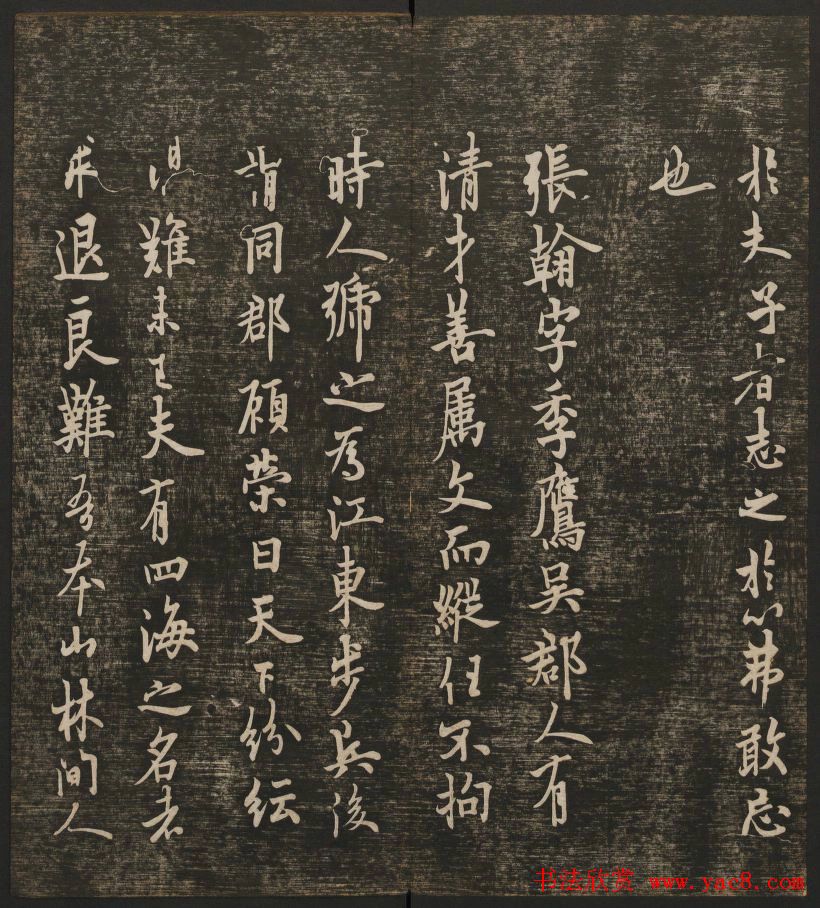 於夫子志之於心弗敢忘
也
張翰字季鷹吳郡人有
清才善属文而縱任不拘
時人號之為江東步兵後
謂同郡顧榮曰天下紛紜
禍難未已夫有四海之名者
求退良難吾本山林間人
书法欣赏 www.yac8.com